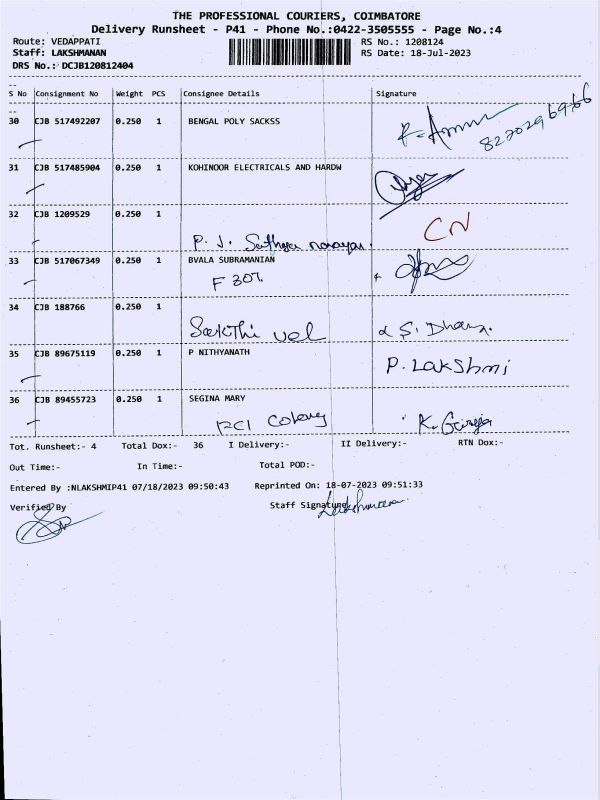 THE PROFESSIONAL COURIERS, COIMBATORE
Delivery Runsheet - P41 - Phone No.:0422-3505555 - Page No.:4
Route: VEDAPPATI RS No.: 1208124
Staff: LAKSHMANAN RS Date: 18-Jul-2023
DRS No.: DCJB120812404
S No Consignment No Weight PCS Consignee Details Signature
30 CJB 517492207 0.250 1 BENGAL POLY SACKSS
31 CJB 517485904 0.250 1 KOHINOOR ELECTRICALS AND HARDW
32 CJB 1209529 0.250 1 CN
P. J. Sathya narayan.
33 CJB 517067349 0.250 1 BVALA SUBRAMANIAN
F 307.
34 CJB 188766 0.250 1
Sakthi vel S. Dhana.
35 CJB 89675119 0.250 1 P NITHYANATH
P. Lakshmi
36 CJB 89455723 0.250 1 SEGINA MARY
Colony K.
Tot. Runsheet:- 4 Total Dox:- 36 I Delivery:- II Delivery:- RTN Dox:-
Out Time:- In Time:- Total POD:-
Entered By :NLAKSHMIP41 07/18/2023 09:50:43 Reprinted On: 18-07-2023 09:51:33
Verified By Staff Signature Lakshmanan.